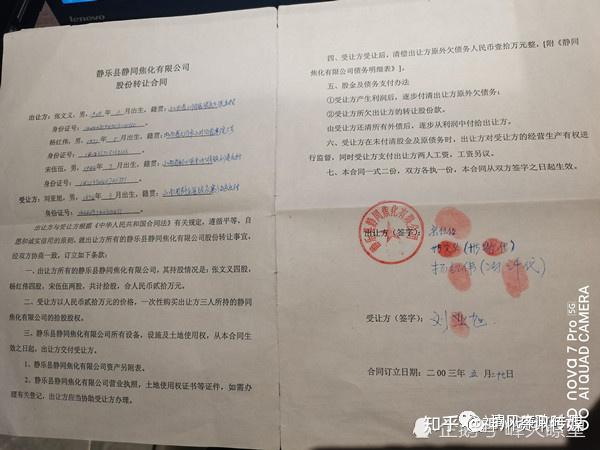 lenovo
静乐县静同焦化有限公司
股份转让合同
出让方：张文义，男，
月出生，籍贯：
身份证号：
杨红伟，男，
月出生，籍贯：
身份证号：
宋伍伍，男，
月出生，籍贯：
身份证号：
受让方：刘亚旭，男，
月出生，籍贯：
身份证号：
出让方与受让方根据《中华人民共和国合同法》有关规定，遵循平等、自
愿和诚实信用的原则，就出让方所有的静乐县静同焦化有限公司股份转让事宜，
经双方协商一致，订立如下条款：
一、出让方所有的静乐县静同焦化有限公司，其持股情况是：张文义四股，
杨红伟四股，宋伍伍两股，共计拾股，合人民币贰拾万元。
二、受让方以人民币贰拾万元的价格，一次性购买出让方三人所持的静同
焦化有限公司的拾股股权。
三、静乐县静同焦化有限公司所有设备，设施及土地使用权，从本合同生
效之日起，出让方交付受让方。
1、静乐县静同焦化有限公司资产另附表。
2、静乐县静同焦化有限公司营业执照，土地使用权证书等证件，如需办
理有关登记，出让方应当协助受让方办理。
四、受让方受让后，清偿出让方原外欠债务人民币壹拾万元整，[附《静同
焦化有限公司债务明细表》]。
五、股金及债务支付办法
①受让方产生利润后，逐步付清出让方原外欠债务；
②受让方所欠出让方的转让股份款。
由受让方还清所有外债后，逐步从利润中付给出让方。
六、受让方在未付清股金及原债务时，出让方对受让方的经营生产有权进
行监督，同时受让方支付出让方两人工资，工资另议。
七、本合同一式二份，双方各执一份，本合同从双方签字之日起生效。
静乐县静同焦化有限公司
出让方（签字）：宋伍伍
受让方（签字）：刘亚旭
合同订立日期：二00三年五月二十九日
nova 7 Pro 5G
AI QUAD CAMERA
知乎